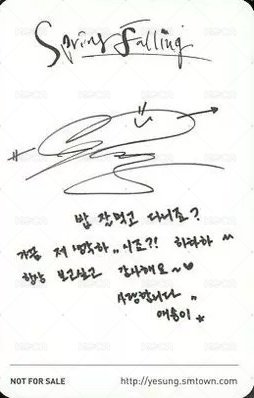 Spring Falling
밥 잘먹고 다니죠?
가끔 저 생각하..시죠?! 히하하 ~
항상 보고싶고 감사해요~♡
사랑합니다 ..
예송이 ★
NOT FOR SALE
http://yesung.smtown.com